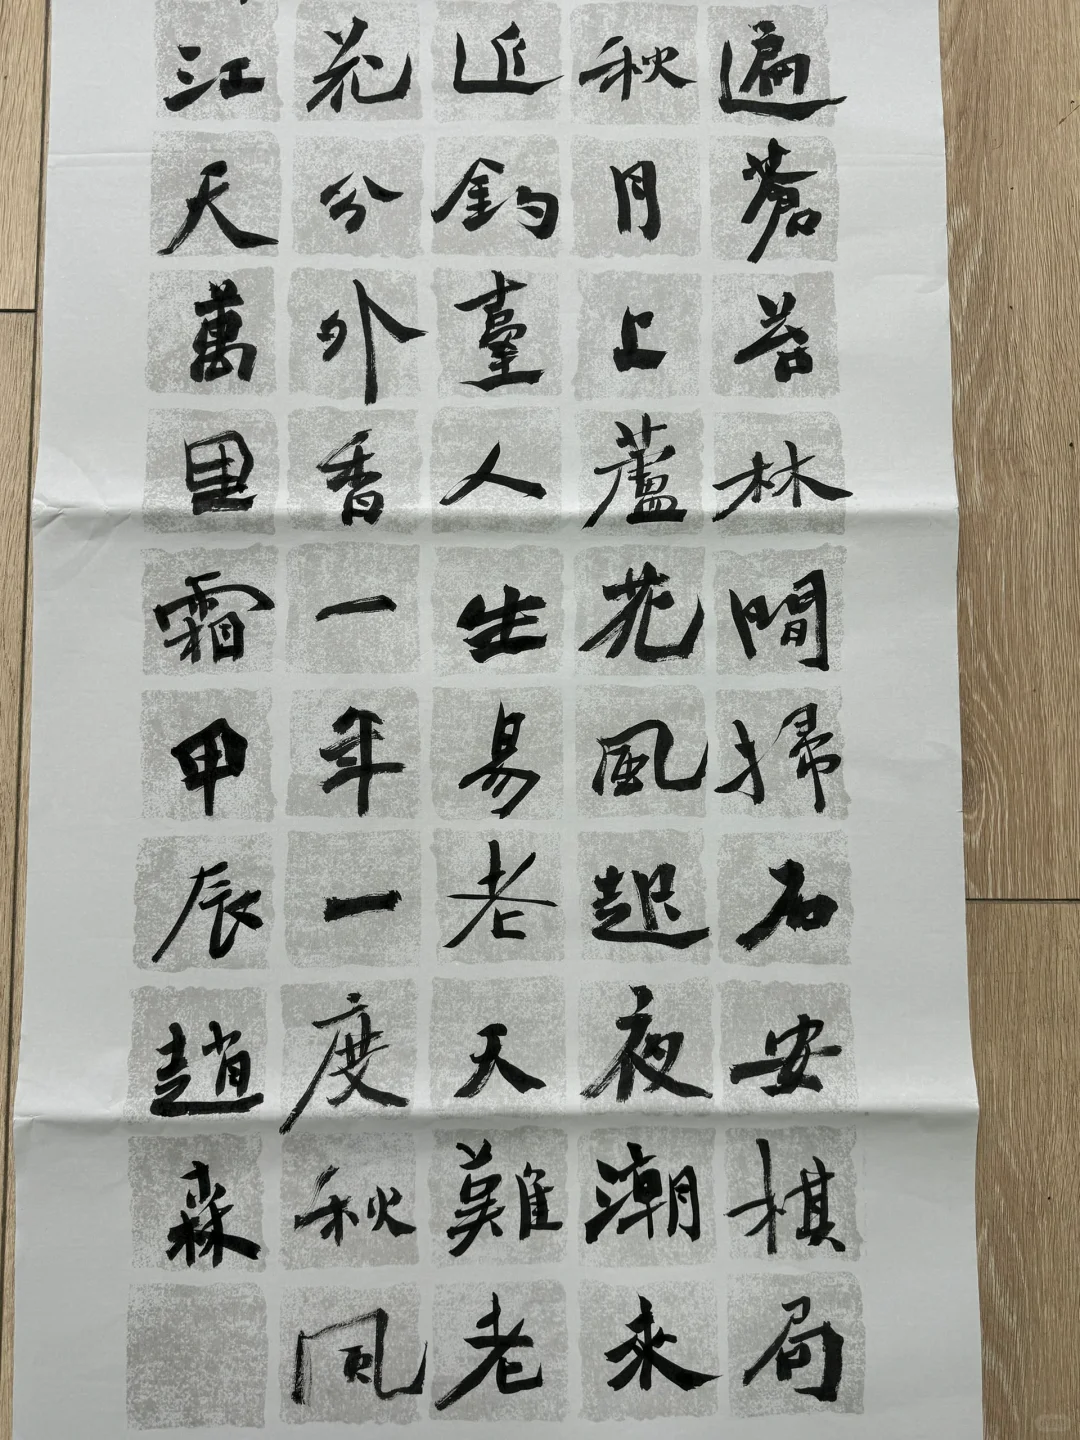 遍蒼苔林間掃石安棋局
秋月上蘆花風起夜潮來
近釣臺人生易老天難老
花分外香一年一度秋風
江天萬里霜甲辰趙森